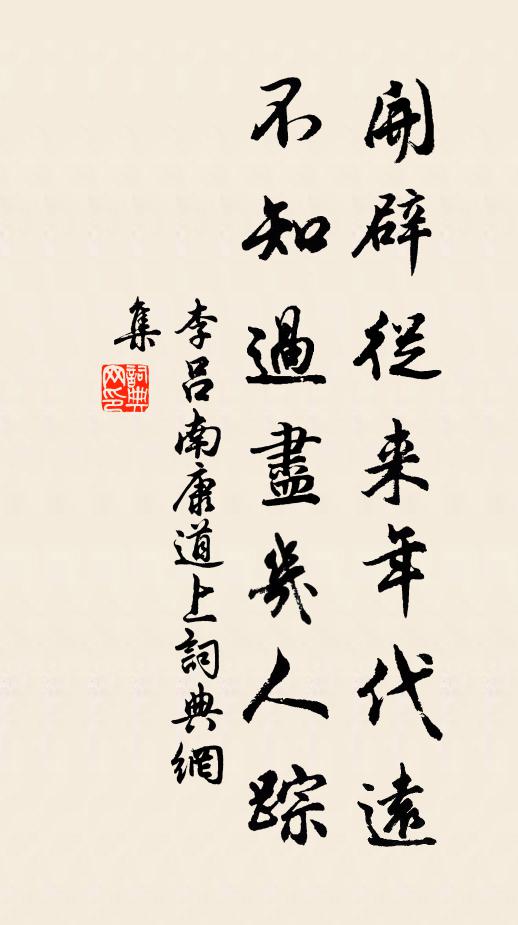 開辟從来年代遠
不知過盡幾人踪
李呂南康道上詞典網
集
詞典
网印